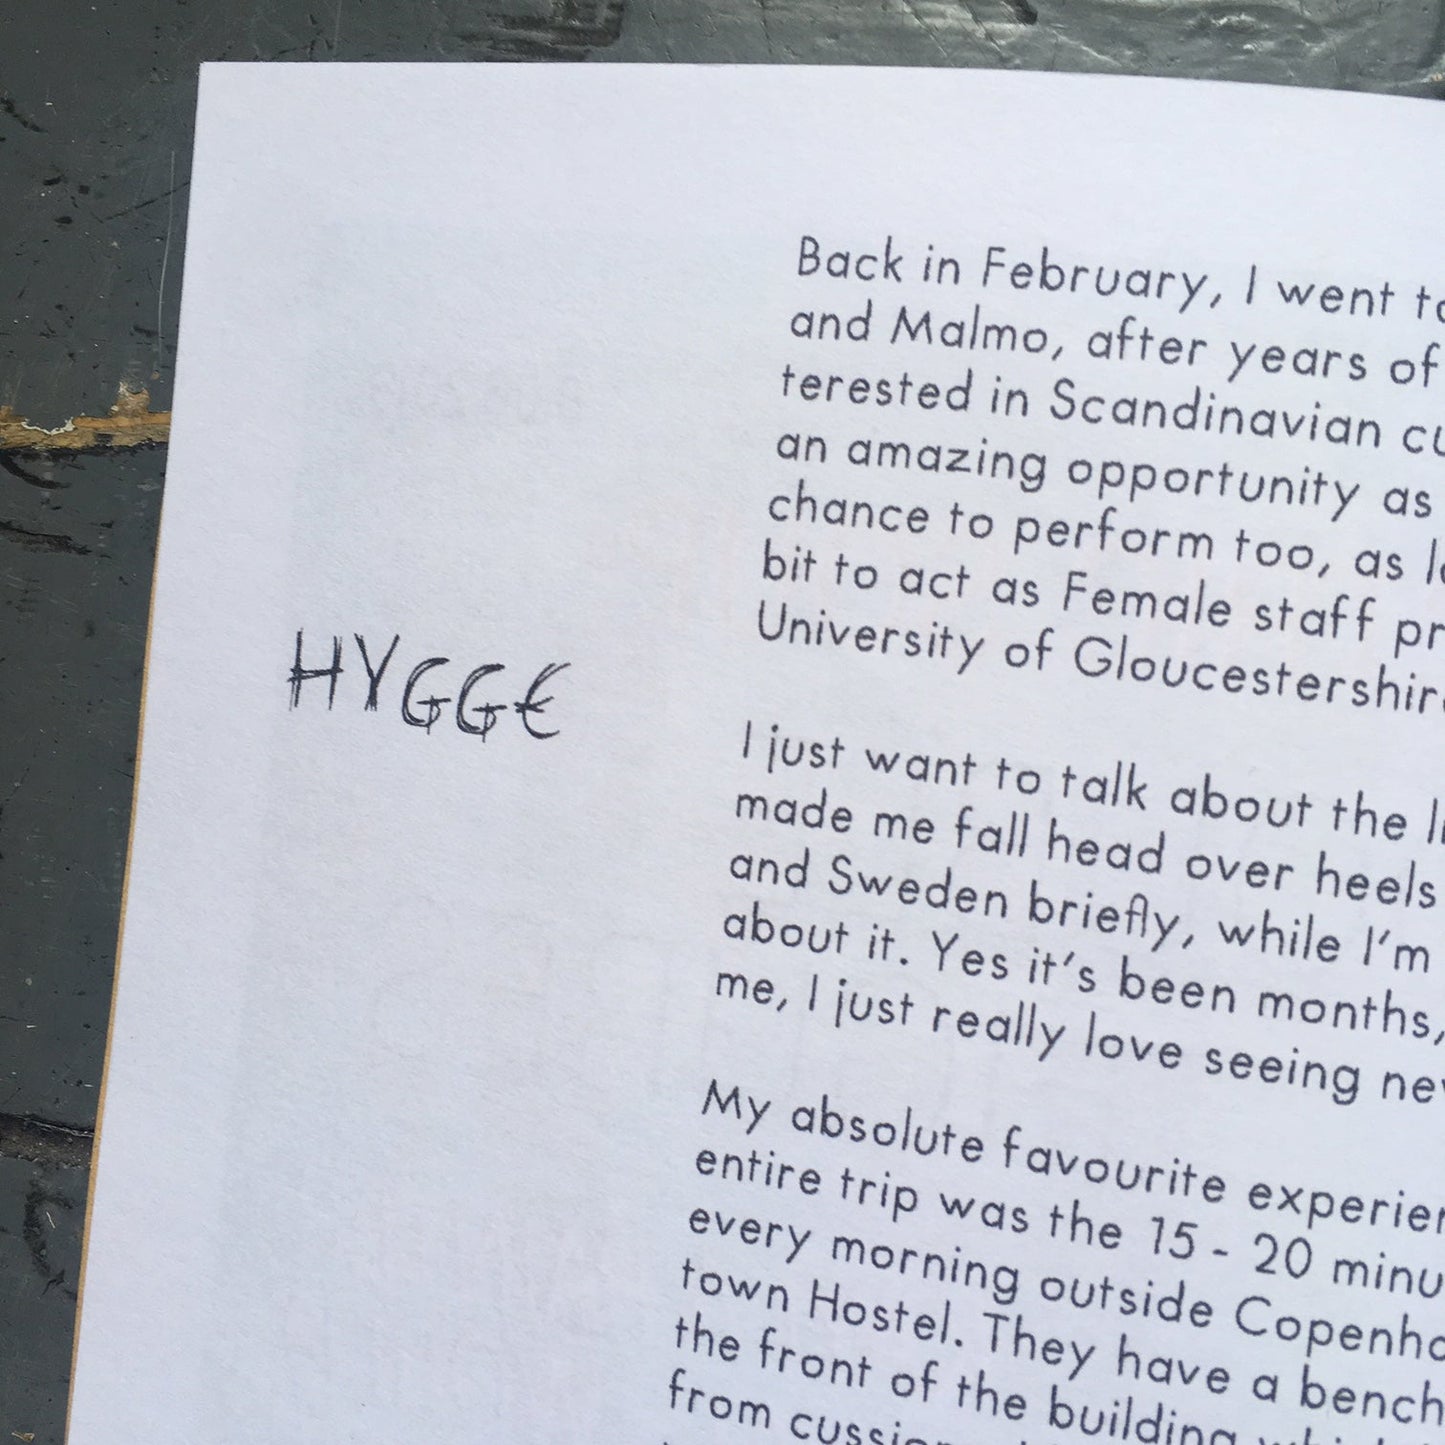 Back in February, I went
and Malmo, after years of
terested in Scandinavian
an amazing opportunity as
chance to perform too, as
bit to act as Female staff
University of
HYGGE
I just want to talk about the
made me fall head over heels
and Sweden briefly, while I'm
about it. Yes it's been months,
me, I just really love seeing
My absolute favourite
entire trip was the 15 - 20
every morning outside
town Hostel. They have a bench
the front of the building
from